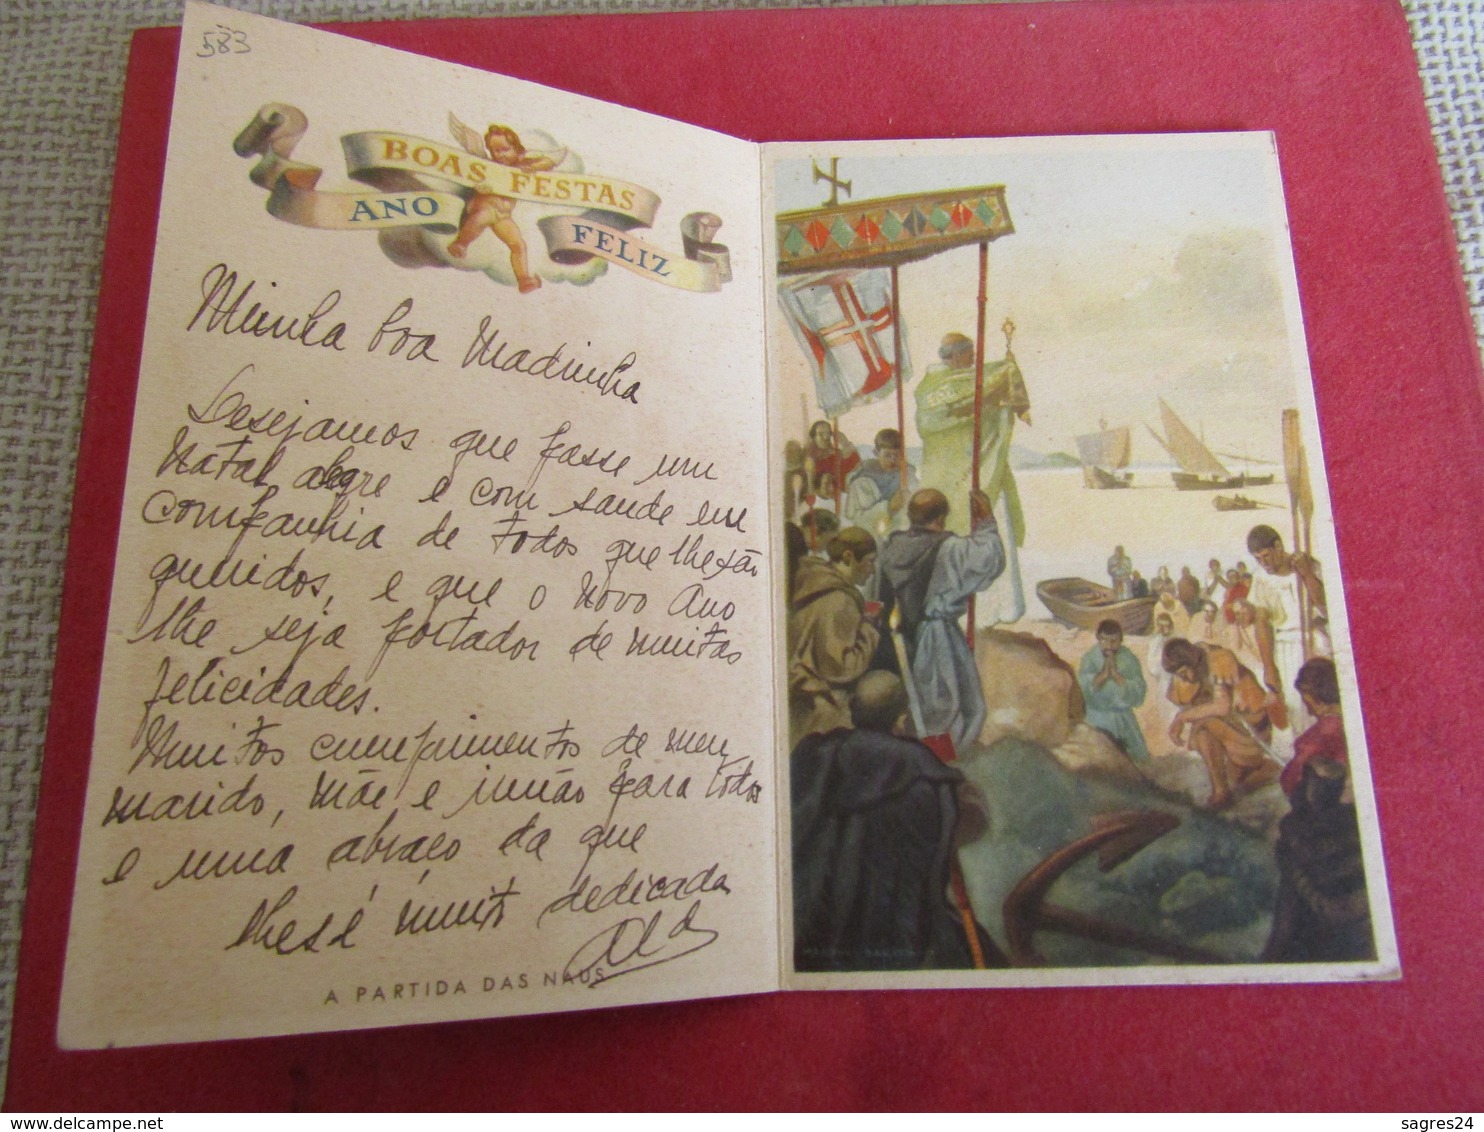 583
BOAS FESTAS
ANO FELIZ
Minha boa Madrinha
Desejamos que passe um
Natal alegre e com saude em
companhia de todos que lhe são
queridos, e que o Novo Ano
lhe seja portador de muitas
felicidades.
Muitos cumprimentos de meu
marido, mãe e irmão para todos
e uma abraço da que
lhe é muito dedicada
Alda
A PARTIDA DAS NAUS
sagres24